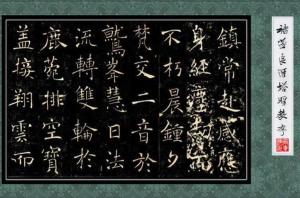 褚遂良雁塔聖教序
鎮常赴感應
身經塵劫而
不朽晨鍾夕
梵交二音於
鷲峯慧日法
流轉雙輪於
鹿菀排空寶
蓋接翔雲而